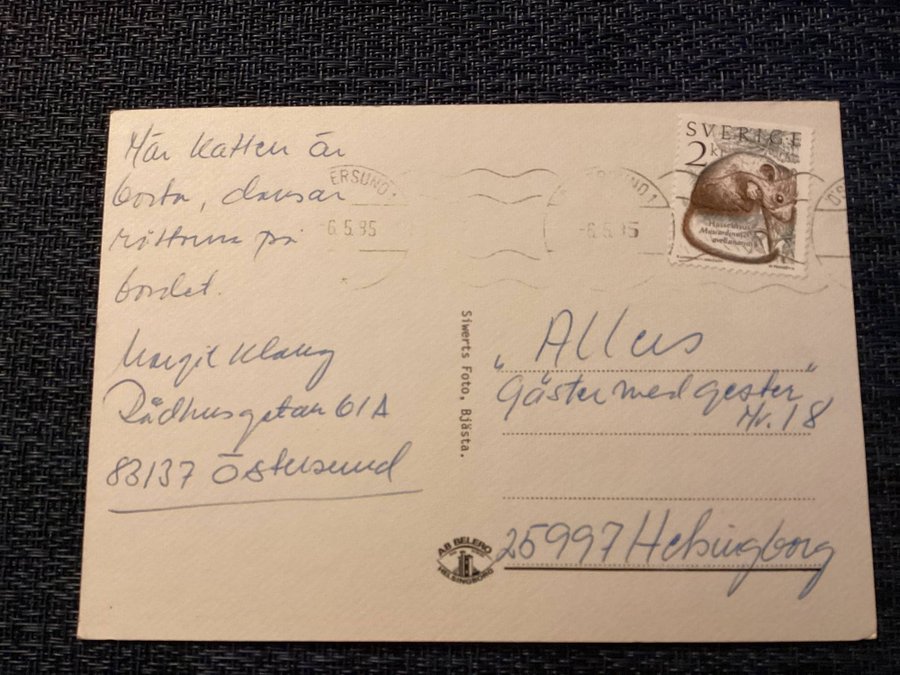 När katten är
borta, dansar
råttorna på
bordet.
Margit Klang
Rådhusgatan 61A
83137 Östersund
ERSUND 1
-6.5.85
ERSUND 1
-6.5.85
SVERIGE
2 KR
Hasselmus
Muscardinus
avellanarius
Siwerts Foto, Bjästa.
"Allers
Gäster med gester"
Nr. 18
AB BELERO
HELSINGBORG
25997 Helsingborg